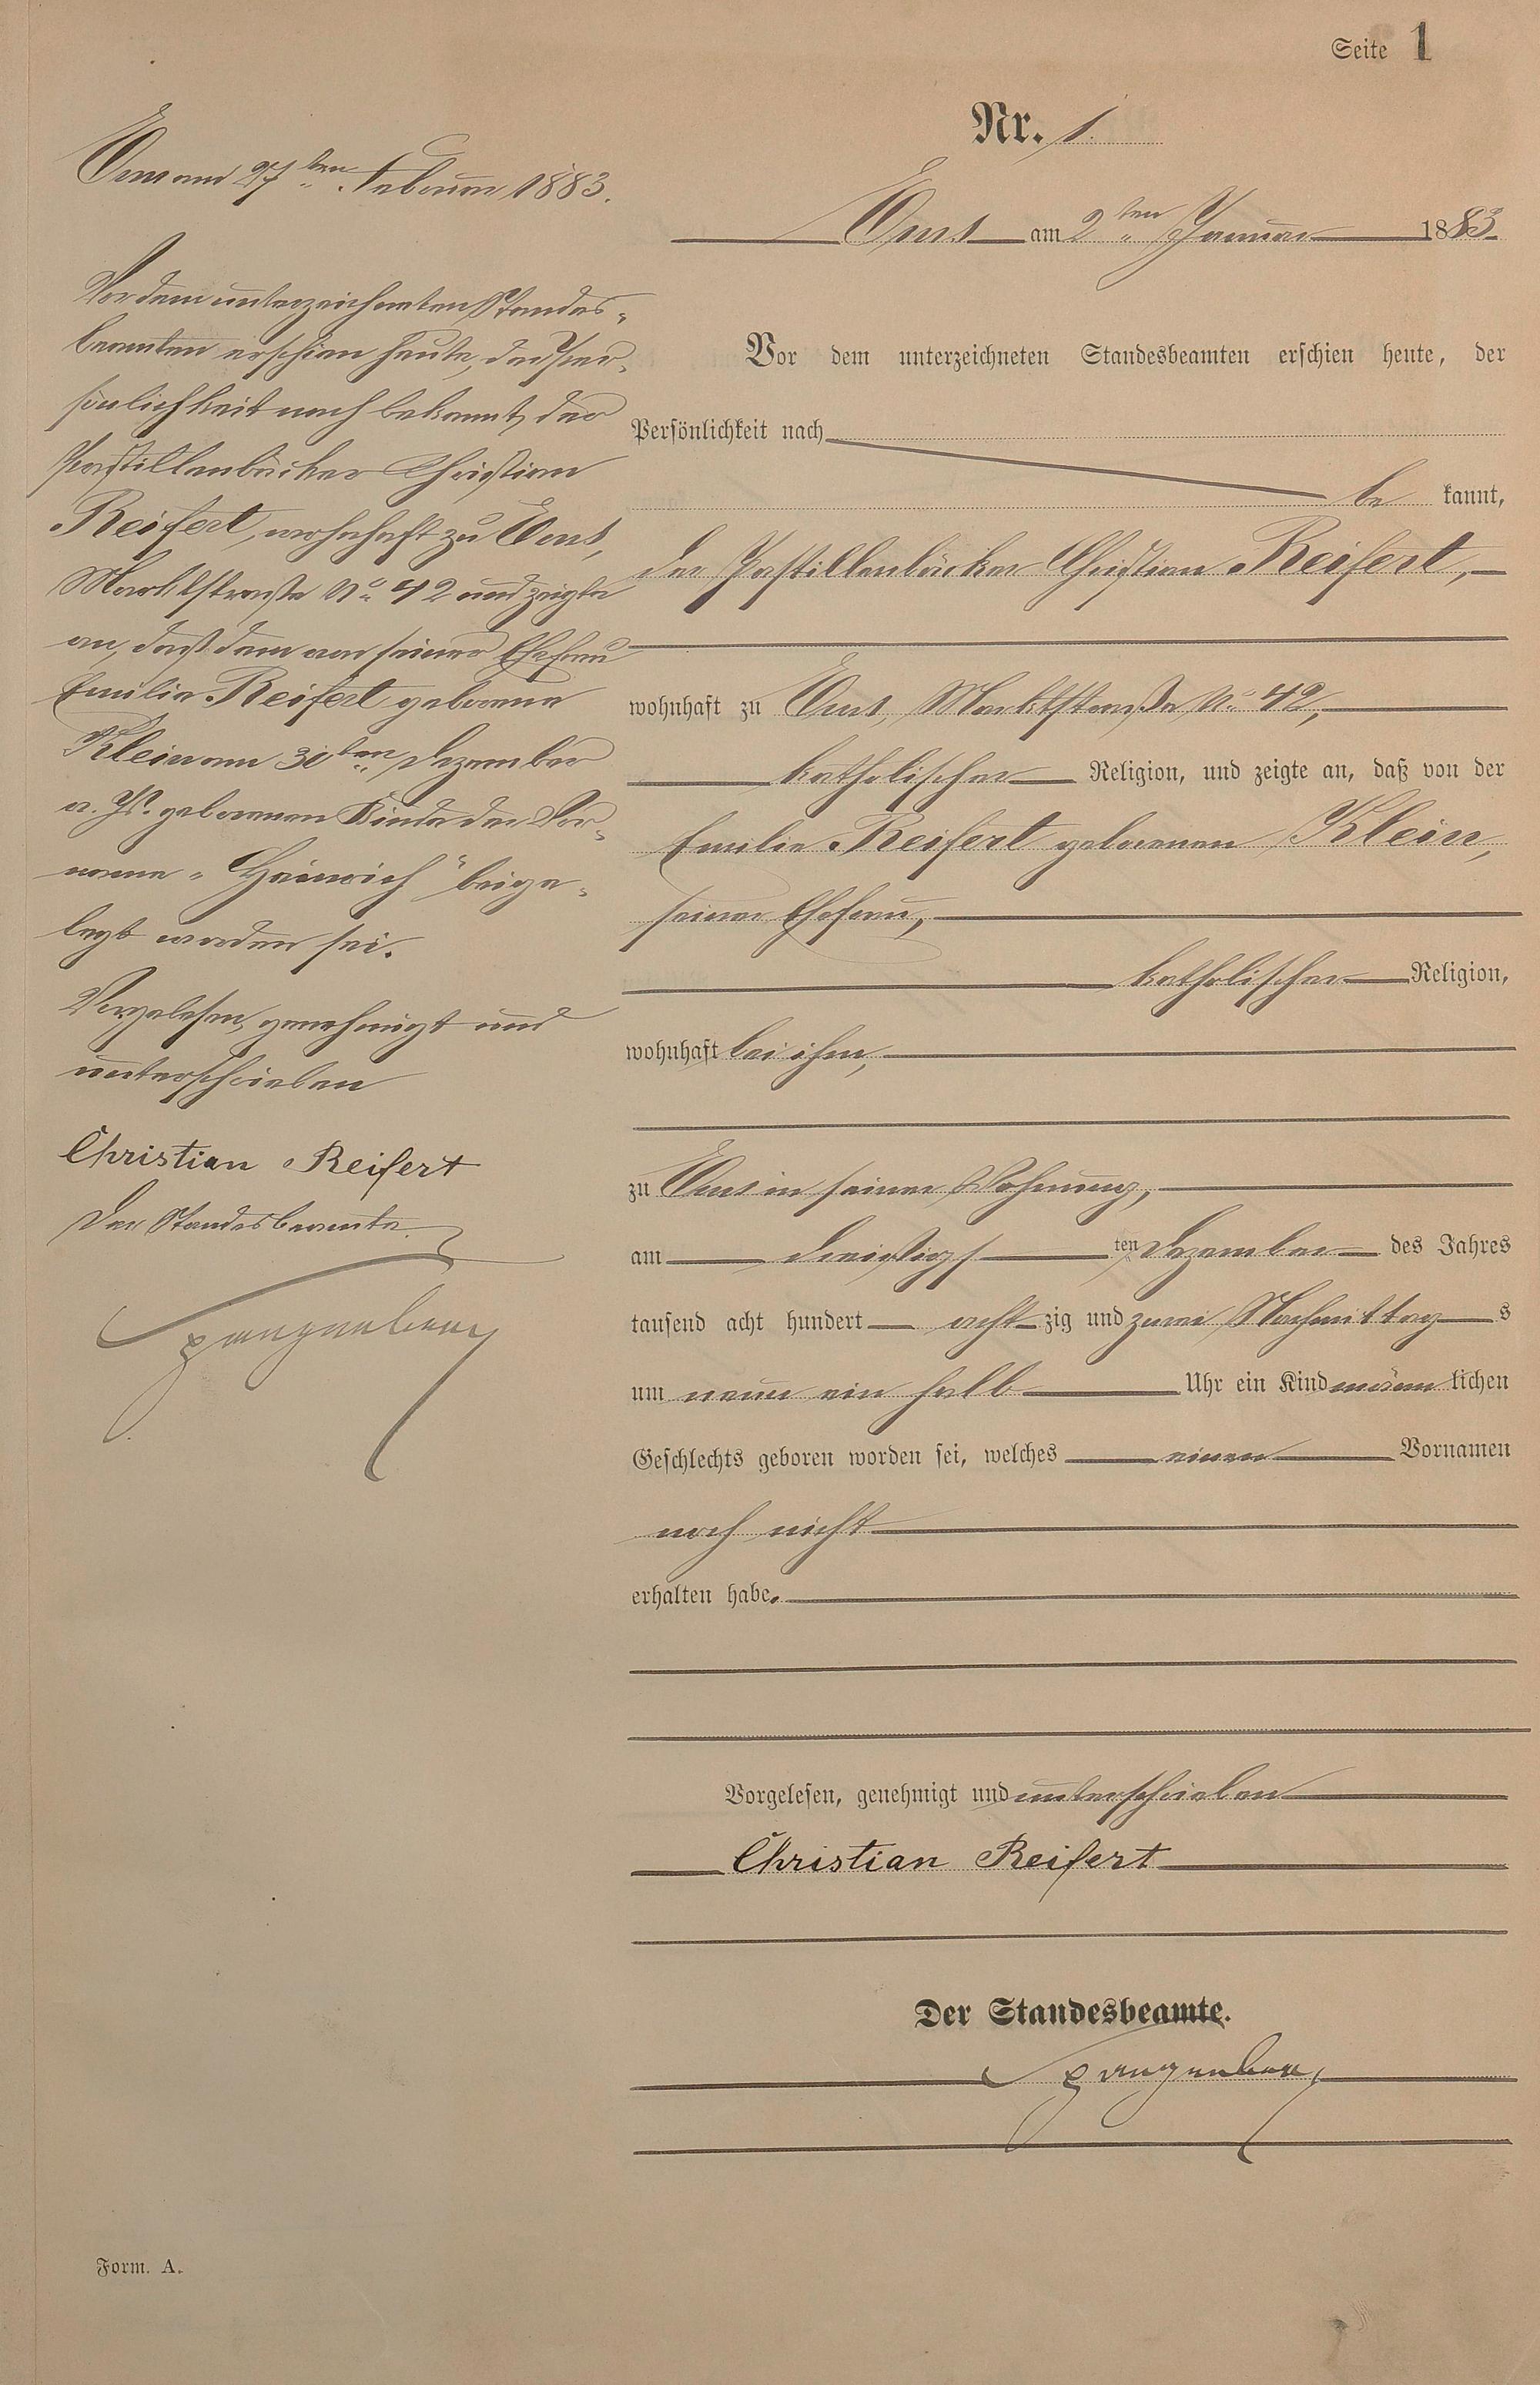 Seite 1
Nr. 1.
Ems am 2ten Januar 1883.
Vor dem unterzeichneten Standesbeamten erschien heute, der
Persönlichkeit nach
be kannt,
der Pastillenbäcker Christian Reifert,
wohnhaft zu Ems, Marktstraße No 42,
katholischer Religion, und zeigte an, daß von der
Emilie Reifert geborenen Klein,
seiner Ehefrau,
katholischer Religion,
wohnhaft bei ihm,
zu Ems in seiner Wohnung,
am dreißigs ten Dezember des Jahres
tausend acht hundert acht zig und zwei Nachmittag s
um neun ein halb Uhr ein Kind männ lichen
Geschlechts geboren worden sei, welches einen Vornamen
noch nicht
erhalten habe.
Vorgelesen, genehmigt und unterschrieben
Christian Reifert
Der Standesbeamte.
Spangenberg
Ems am 27ten Februar 1883.
Vor dem unterzeichneten Standes-
beamten erschien heute, der Per-
sönlichkeit nach bekannt, der
Pastillenbäcker Christian
Reifert, wohnhaft zu Ems,
Marktstraße No 42 und zeigte
an, daß dem von seiner Ehefrau
Emilie Reifert geborene
Klein am 30ten Dezember
v. Js. geborenen Kinde der Vor-
name "Heinrich" beige-
legt worden sei.
Vorgelesen, genehmigt und
unterschrieben
Christian Reifert
Der Standesbeamte.
Spangenberg
Form. A.